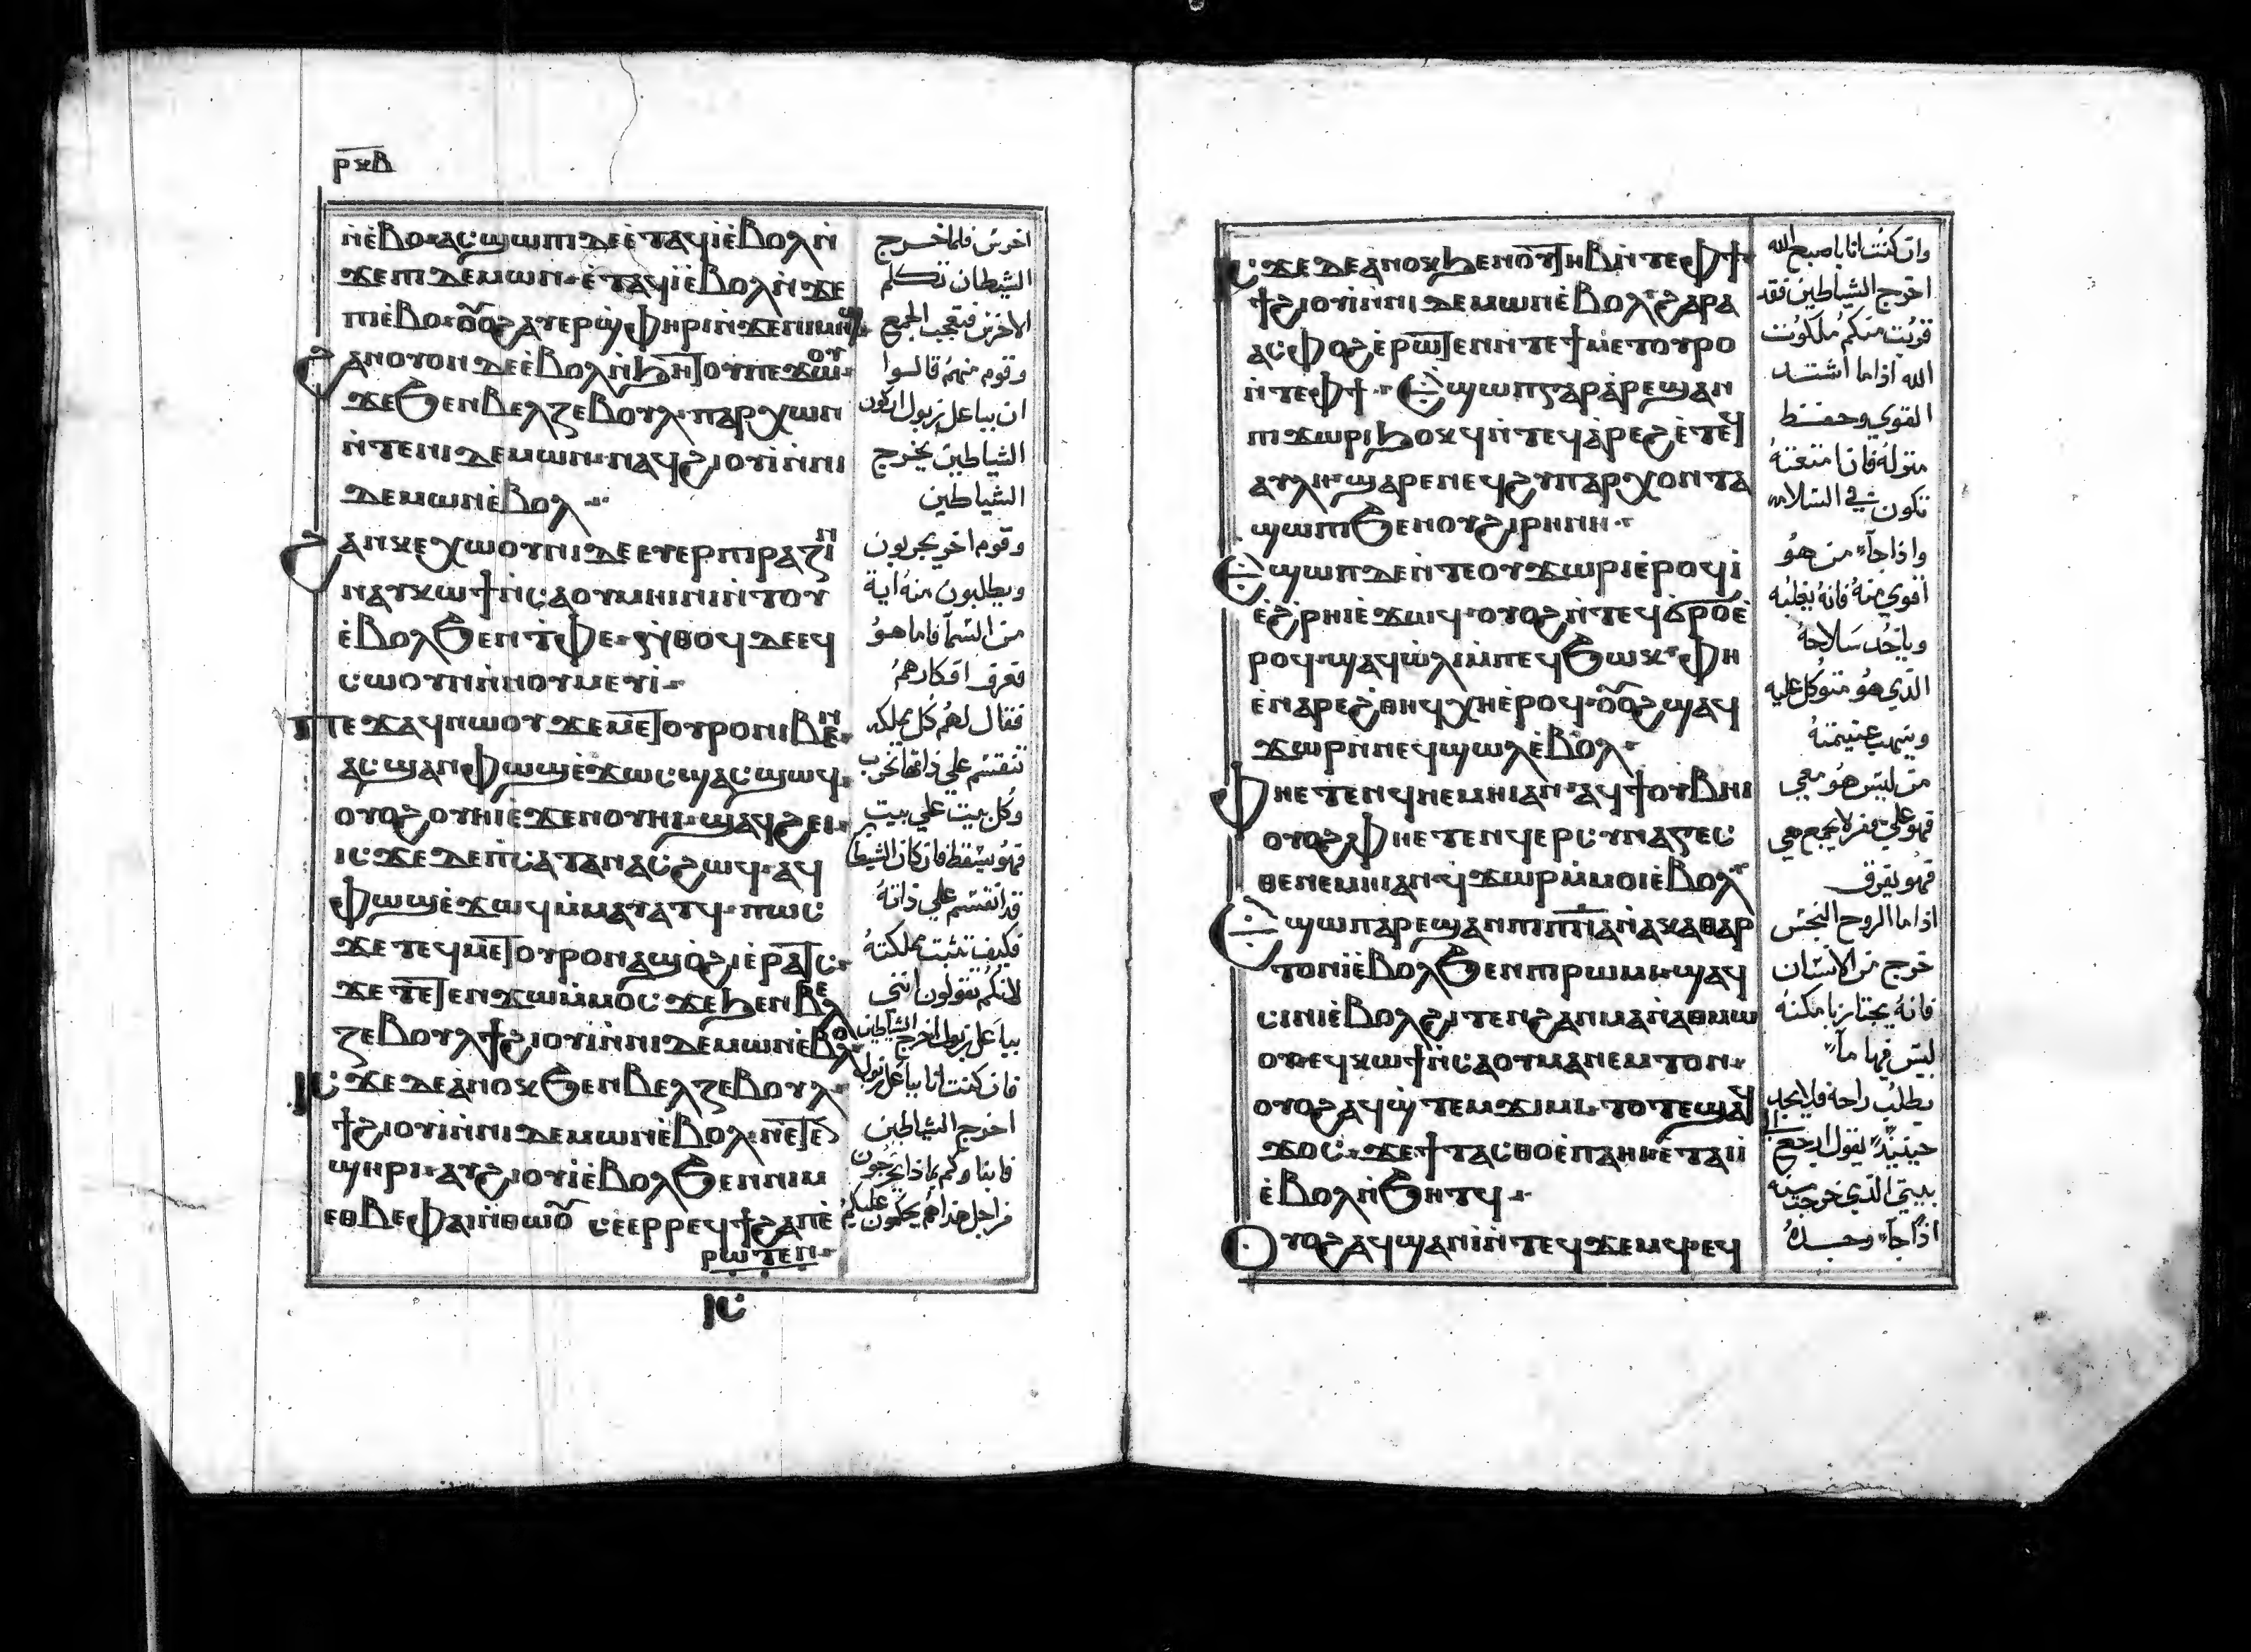 ⲣⲕⲃ
ⲛ̀ⲉ̀ⲃⲟ ⲁⲥϣⲱⲡⲓ ⲇⲉ ⲉ̀ⲧⲁϥⲓ̀ ⲉ̀ⲃⲟⲗ ⲛ̀
ϫⲉ ⲡⲓⲇⲉⲙⲱⲛ ⲉ̀ⲧⲁϥⲓ̀ ⲉ̀ⲃⲟⲗ ⲛ̀ϫⲉ
ⲡⲓⲉ̀ⲃⲟ ⲟⲩⲟϩ ⲁⲩⲉⲣϣ̀ⲫⲏⲣⲓ ⲛ̀ϫⲉ ⲛⲓⲙⲏϣ
ϩⲁⲛⲟⲩⲟⲛ ⲇⲉ ⲉ̀ⲃⲟⲗ ⲛ̀ϧⲏⲧⲟⲩ ⲡⲉϫⲱⲟⲩ
ϫⲉ ϧⲉⲛ ⲃⲉⲗⲍⲉⲃⲟⲩⲗ ⲡⲁⲣⲭⲱⲛ
ⲛ̀ⲧⲉ ⲛⲓⲇⲉⲙⲱⲛ ⲛⲁϥϩⲓⲟⲩⲓ̀ ⲛ̀ⲛⲓ
ⲇⲉⲙⲱⲛ ⲉ̀ⲃⲟⲗ
ϩⲁⲛⲕⲉⲭⲱⲟⲩⲛⲓ ⲇⲉ ⲉⲩⲉⲣⲡⲓⲣⲁⲍⲓⲛ
ⲛⲁⲩⲕⲱϯ ⲛ̀ⲥⲁ ⲟⲩⲙⲏⲓⲛⲓ ⲛ̀ⲧⲟⲩ
ⲉ̀ⲃⲟⲗ ϧⲉⲛ ⲧ̀ⲫⲉ ⲛ̀ⲑⲟϥ ⲇⲉ ⲉϥ
ⲥⲱⲟⲩⲛ ⲛ̀ⲛⲟⲩⲙⲉⲩⲓ
ⲡⲉϫⲁϥ ⲛⲱⲟⲩ ϫⲉ ⲙⲉⲧⲟⲩⲣⲟ ⲛⲓⲃⲉⲛ
ⲁⲥϣⲁⲛⲫⲱϣ ⲉ̀ϫⲱⲥ ϣⲁⲥϣⲱϥ
ⲟⲩⲟϩ ⲟⲩⲏⲓ ⲉ̀ϫⲉⲛ ⲟⲩⲏⲓ ϣⲁϥϩⲉⲓ
ⲓⲥϫⲉ ⲇⲉ ⲡ̀ⲥⲁⲧⲁⲛⲁⲥ ϩⲱϥ ⲁϥ
ⲫⲱϣ ⲉ̀ϫⲱϥ ⲙ̀ⲙⲁⲩⲁⲧϥ ⲡⲱⲥ
ϫⲉ ⲧⲉϥⲙⲉⲧⲟⲩⲣⲟ ⲛⲁϣⲟ̀ϩⲓ ⲉ̀ⲣⲁⲧⲥ
ϫⲉ ⲧⲉⲧⲉⲛϫⲱ ⲙ̀ⲙⲟⲥ ϫⲉ ϧⲉⲛ ⲃⲉⲗ
ⲍⲉⲃⲟⲩⲗ ϯϩⲓⲟⲩⲓ̀ ⲛ̀ⲛⲓⲇⲉⲙⲱⲛ ⲉ̀ⲃⲟⲗ
ⲓⲥϫⲉ ⲇⲉ ⲁ̀ⲛⲟⲕ ϧⲉⲛ ⲃⲉⲗⲍⲉⲃⲟⲩⲗ
ϯϩⲓⲟⲩⲓ̀ ⲛ̀ⲛⲓⲇⲉⲙⲱⲛ ⲉ̀ⲃⲟⲗ ⲛⲉⲧⲉⲛ
ϣⲏⲣⲓ ⲁⲩϩⲓⲟⲩⲓ̀ ⲉ̀ⲃⲟⲗ ϧⲉⲛ ⲛⲓⲙ
ⲉⲑⲃⲉ ⲫⲁⲓ ⲛ̀ⲑⲱⲟⲩ ⲥⲉⲉⲣⲣⲉϥϯϩⲁⲡ ⲉ̀
ⲣⲱⲧⲉⲛ
ⲓⲥ
اخرس فلما خرج
الشيطان تكلم
الاخرس فتعجب الجمع
وقوم منهم قالوا
ان بباعل زبول اركون
الشياطين يخرج
الشياطين
وقوم اخر يجربون
ويطلبون منه اية
من السما فاما هو
فعرف افكارهم
فقال لهم كل مملكه
تنقسم علي ذاتها تخرب
وكل بيت علي بيت
فهو يسقط فان كان الشيطا
قد انقسم علي ذاته
فكيف تثبت مملكته
لانكم تقولون انني
بباعل زبول اخرج الشياطين
فان كنت انا بباعل زبول
اخرج الشياطين
فابناوكم بماذا يخرجون
من اجل هذا هم يحكمون عليكم
ⲓⲥϫⲉ ⲇⲉ ⲁ̀ⲛⲟⲕ ϧⲉⲛ ⲟⲩⲧⲏⲃ ⲛ̀ⲧⲉ ⲫϯ
ϯϩⲓⲟⲩⲓ̀ ⲛ̀ⲛⲓⲇⲉⲙⲱⲛ ⲉ̀ⲃⲟⲗ ϩⲁⲣⲁ
ⲁⲥⲫⲟϩ ⲉ̀ⲣⲱⲧⲉⲛ ⲛ̀ϫⲉ ϯⲙⲉⲧⲟⲩⲣⲟ
ⲛ̀ⲧⲉ ⲫϯ ⲉ̀ϣⲱⲡ ⲅⲁⲣ ⲁ̀ⲣⲉϣⲁⲛ
ⲡⲓϫⲱⲣⲓ ϧⲟⲕϥ ⲛ̀ⲧⲉϥⲁ̀ⲣⲉϩ ⲉ̀ⲧⲉϥ
ⲁⲩⲗⲏ ϣⲁⲣⲉ ⲛⲉϥϩⲩⲡⲁⲣⲭⲟⲛⲧⲁ
ϣⲱⲡⲓ ϧⲉⲛ ⲟⲩϩⲓⲣⲏⲛⲏ
ⲉ̀ϣⲱⲡ ⲇⲉ ⲛ̀ⲧⲉ ⲟⲩϫⲱⲣⲓ ⲉ̀ⲣⲟϥ ⲓ̀
ⲉ̀ϩ̀ⲣⲏⲓ ⲉ̀ϫⲱϥ ⲟⲩⲟϩ ⲛ̀ⲧⲉϥϭⲣⲟ ⲉ̀
ⲣⲟϥ ϣⲁϥⲱ̀ⲗⲓ ⲙ̀ⲡⲉϥϧⲱⲕ ⲫⲏ
ⲉ̀ⲛⲁⲣⲉ ϩⲑⲏϥ ⲭⲏ ⲉ̀ⲣⲟϥ ⲟⲩⲟϩ ϣⲁϥ
ϫⲱⲣ ⲛ̀ⲛⲉϥϣⲱⲗ ⲉ̀ⲃⲟⲗ
ⲫⲏⲉⲧⲉⲛϥⲛⲉⲙⲏⲓ ⲁⲛ ⲁϥϯ ⲟⲩⲃⲏⲓ
ⲟⲩⲟϩ ⲫⲏⲉⲧⲉⲛϥⲉⲣⲥⲩⲛⲁⲅⲉⲥ
ⲑⲉ ⲛⲉⲙⲏⲓ ⲁⲛ ϥϫⲱⲣ ⲙ̀ⲙⲟⲓ ⲉ̀ⲃⲟⲗ
ⲉ̀ϣⲱⲡ ⲁⲣⲉϣⲁⲛ ⲡⲓⲡⲛⲁ ⲛ̀ⲁⲕⲁⲑⲁⲣ
ⲧⲟⲛ ⲓ̀ ⲉ̀ⲃⲟⲗ ϧⲉⲛ ⲡⲓⲣⲱⲙⲓ ϣⲁϥ
ⲥⲓⲛⲓ ⲉ̀ⲃⲟⲗ ϩⲓⲧⲉⲛ ϩⲁⲛⲙⲁ ⲛ̀ⲁⲑⲙⲱ
ⲟⲩ ⲉϥⲕⲱϯ ⲛ̀ⲥⲁ ⲟⲩⲙⲁⲛⲉⲙⲧⲟⲛ
ⲟⲩⲟϩ ⲁϥϣ̀ⲧⲉⲙϫⲓⲙⲓ ⲧⲟⲧⲉ ϣⲁϥ
ϫⲟⲥ ϫⲉ ϯⲧⲁⲥⲑⲟ ⲉ̀ⲡⲁⲏⲓ ⲉ̀ⲧⲁⲓⲓ̀
ⲉ̀ⲃⲟⲗ ⲛ̀ϧⲏⲧϥ
ⲟⲩⲟϩ ⲁϥϣⲁⲛⲓ̀ ⲛ̀ⲧⲉϥϫⲉⲙϥ ⲉϥ
وان كنت انا باصبع الله
اخرج الشياطين فقد
قربت منكم ملكوت
الله اذا ما اشتد
القوي وحفظ
منزله فان امتعته
تكون في السلامه
واذا جاء من هو
اقوي منه فانه يغلبه
وياخد سلاحه
الذي هو متوكل عليه
وينهب غنيمته
من ليس هو معي
فهو علي ومن لا يجمع معي
فهو يفرق
اذا ما الروح النجس
خرج من الانسان
فانه يجتاز بامكنه
ليس فيها ماء
يطلب راحة فلا يجد
حينيذ يقول ارجع
بيتي الذي خرجت منه
اذا جاء وحده